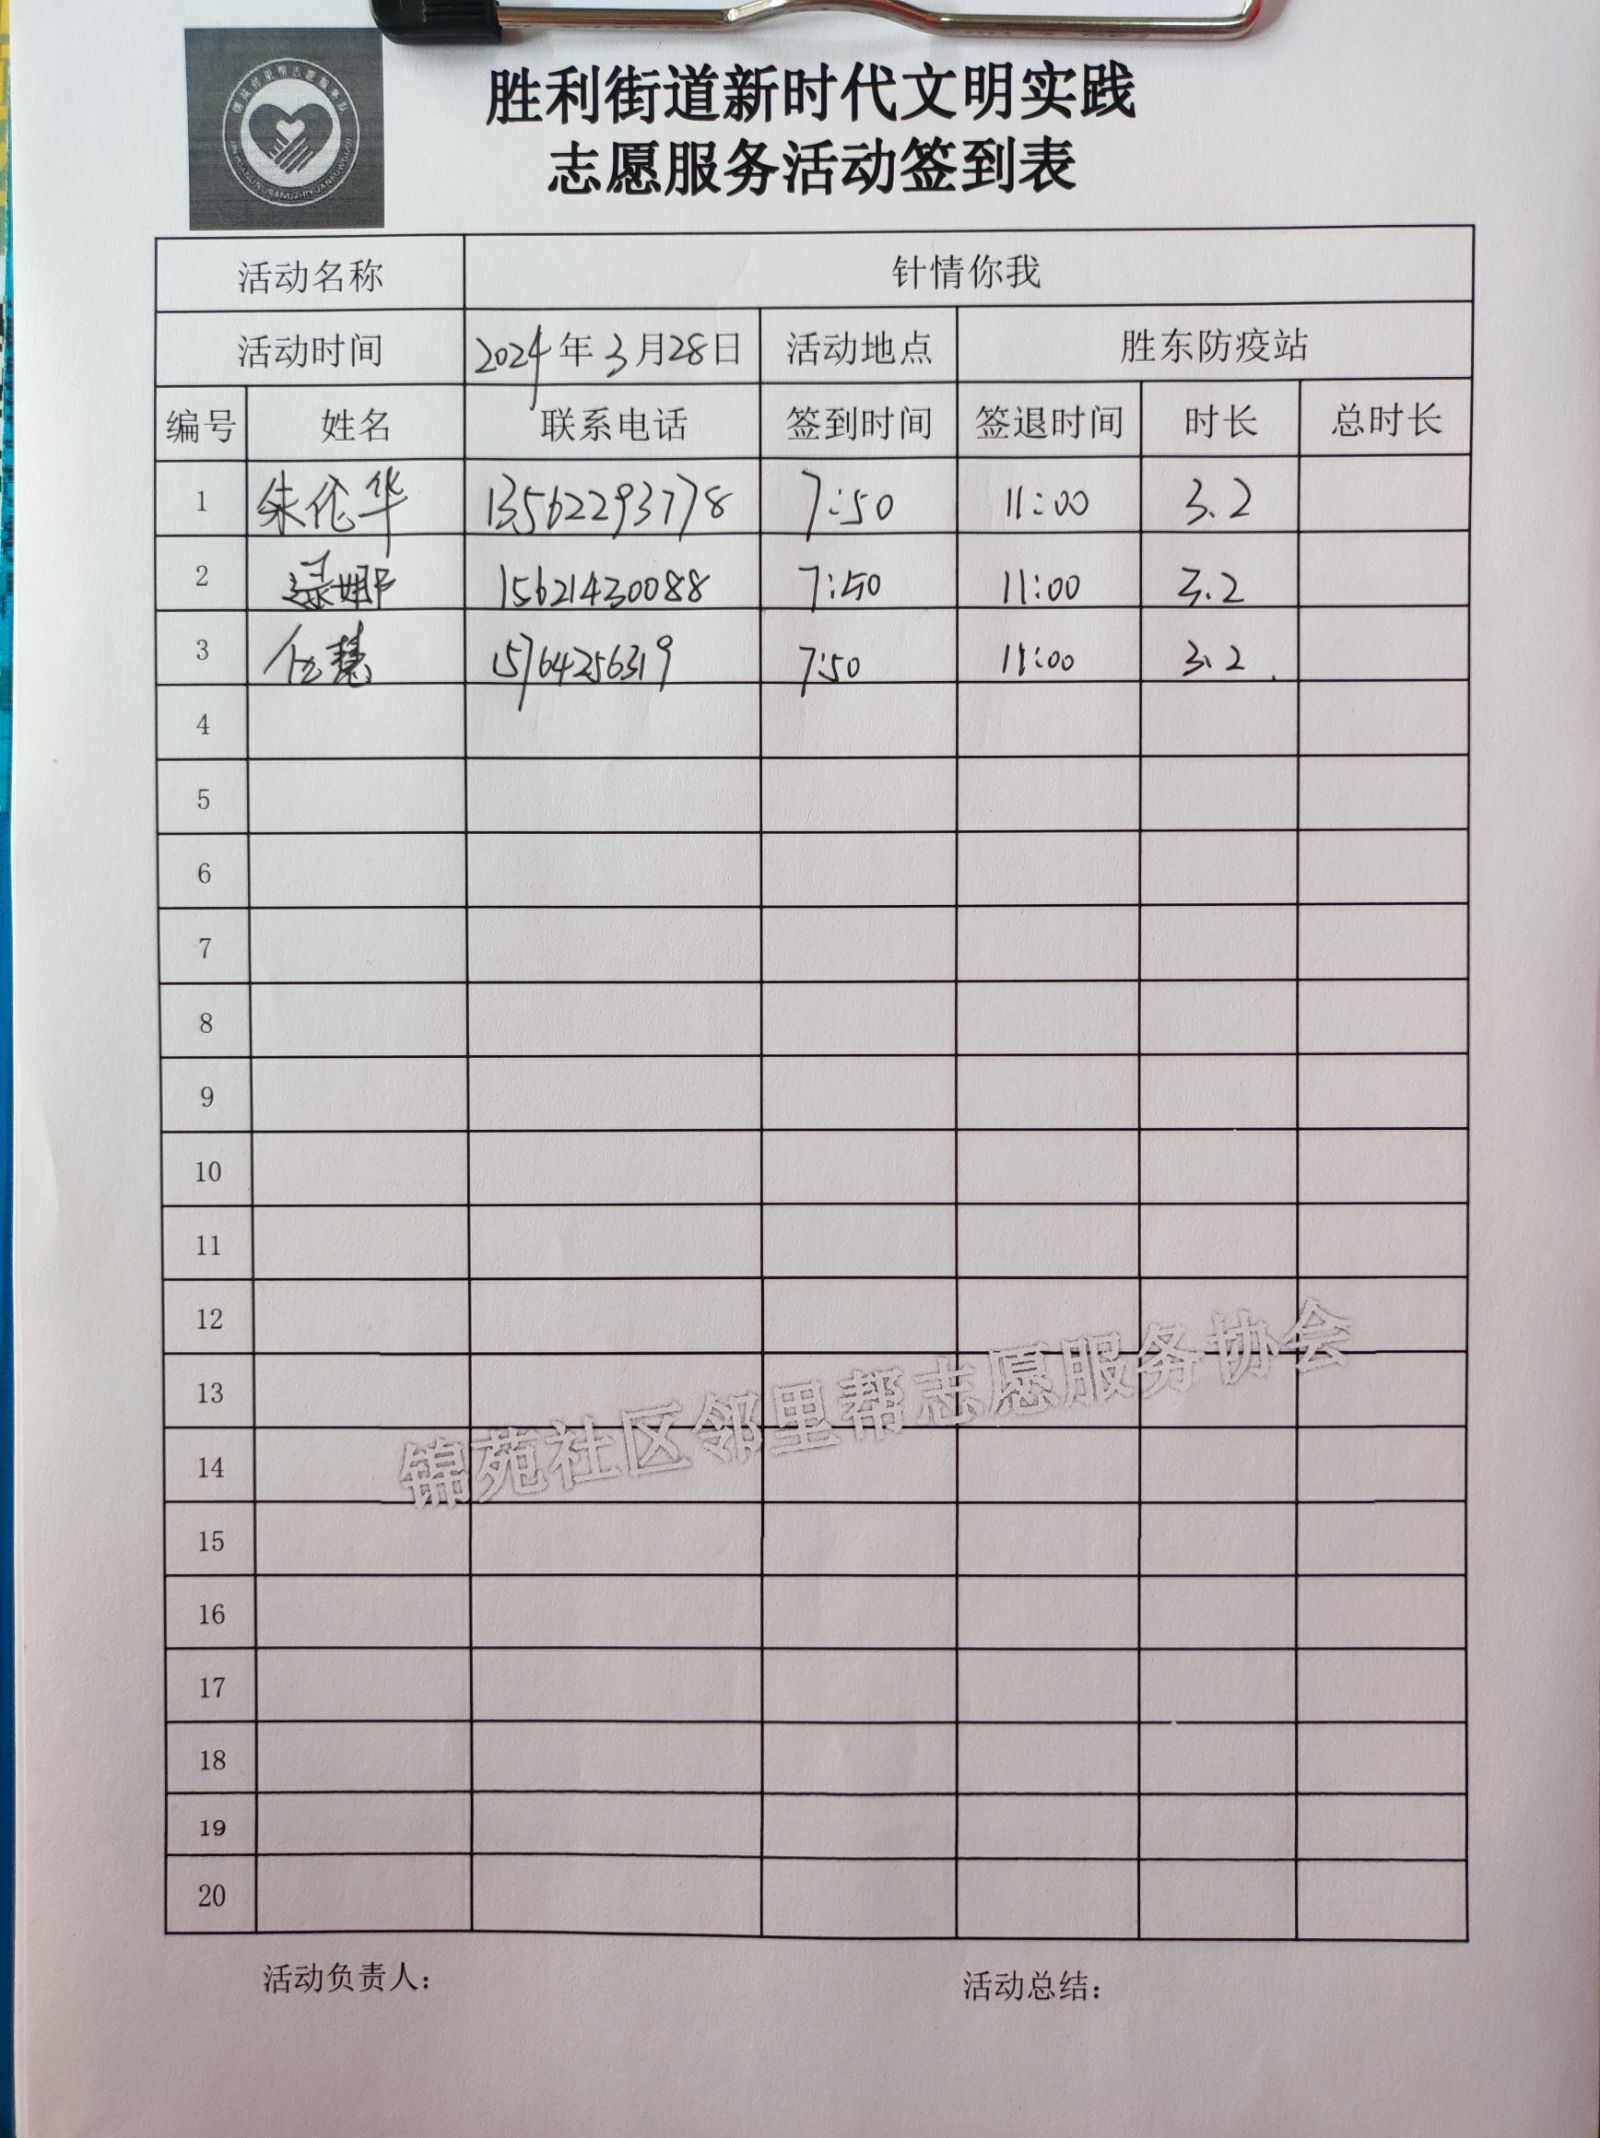 胜利街道新时代文明实践
志愿服务活动签到表
活动名称 针情你我
活动时间 2024年3月28日 活动地点 胜东防疫站
编号 姓名 联系电话 签到时间 签退时间 时长 总时长
1 朱伦华 13562293778 7:50 11:00 3.2
2 逯娜 15621430088 7:50 11:00 3.2
3 任慧 15764256319 7:50 11:00 3.2
4
5
6
7
8
9
10
11
12
13
14
15
16
17
18
19
20
锦苑社区邻里帮志愿服务协会
活动负责人： 活动总结：